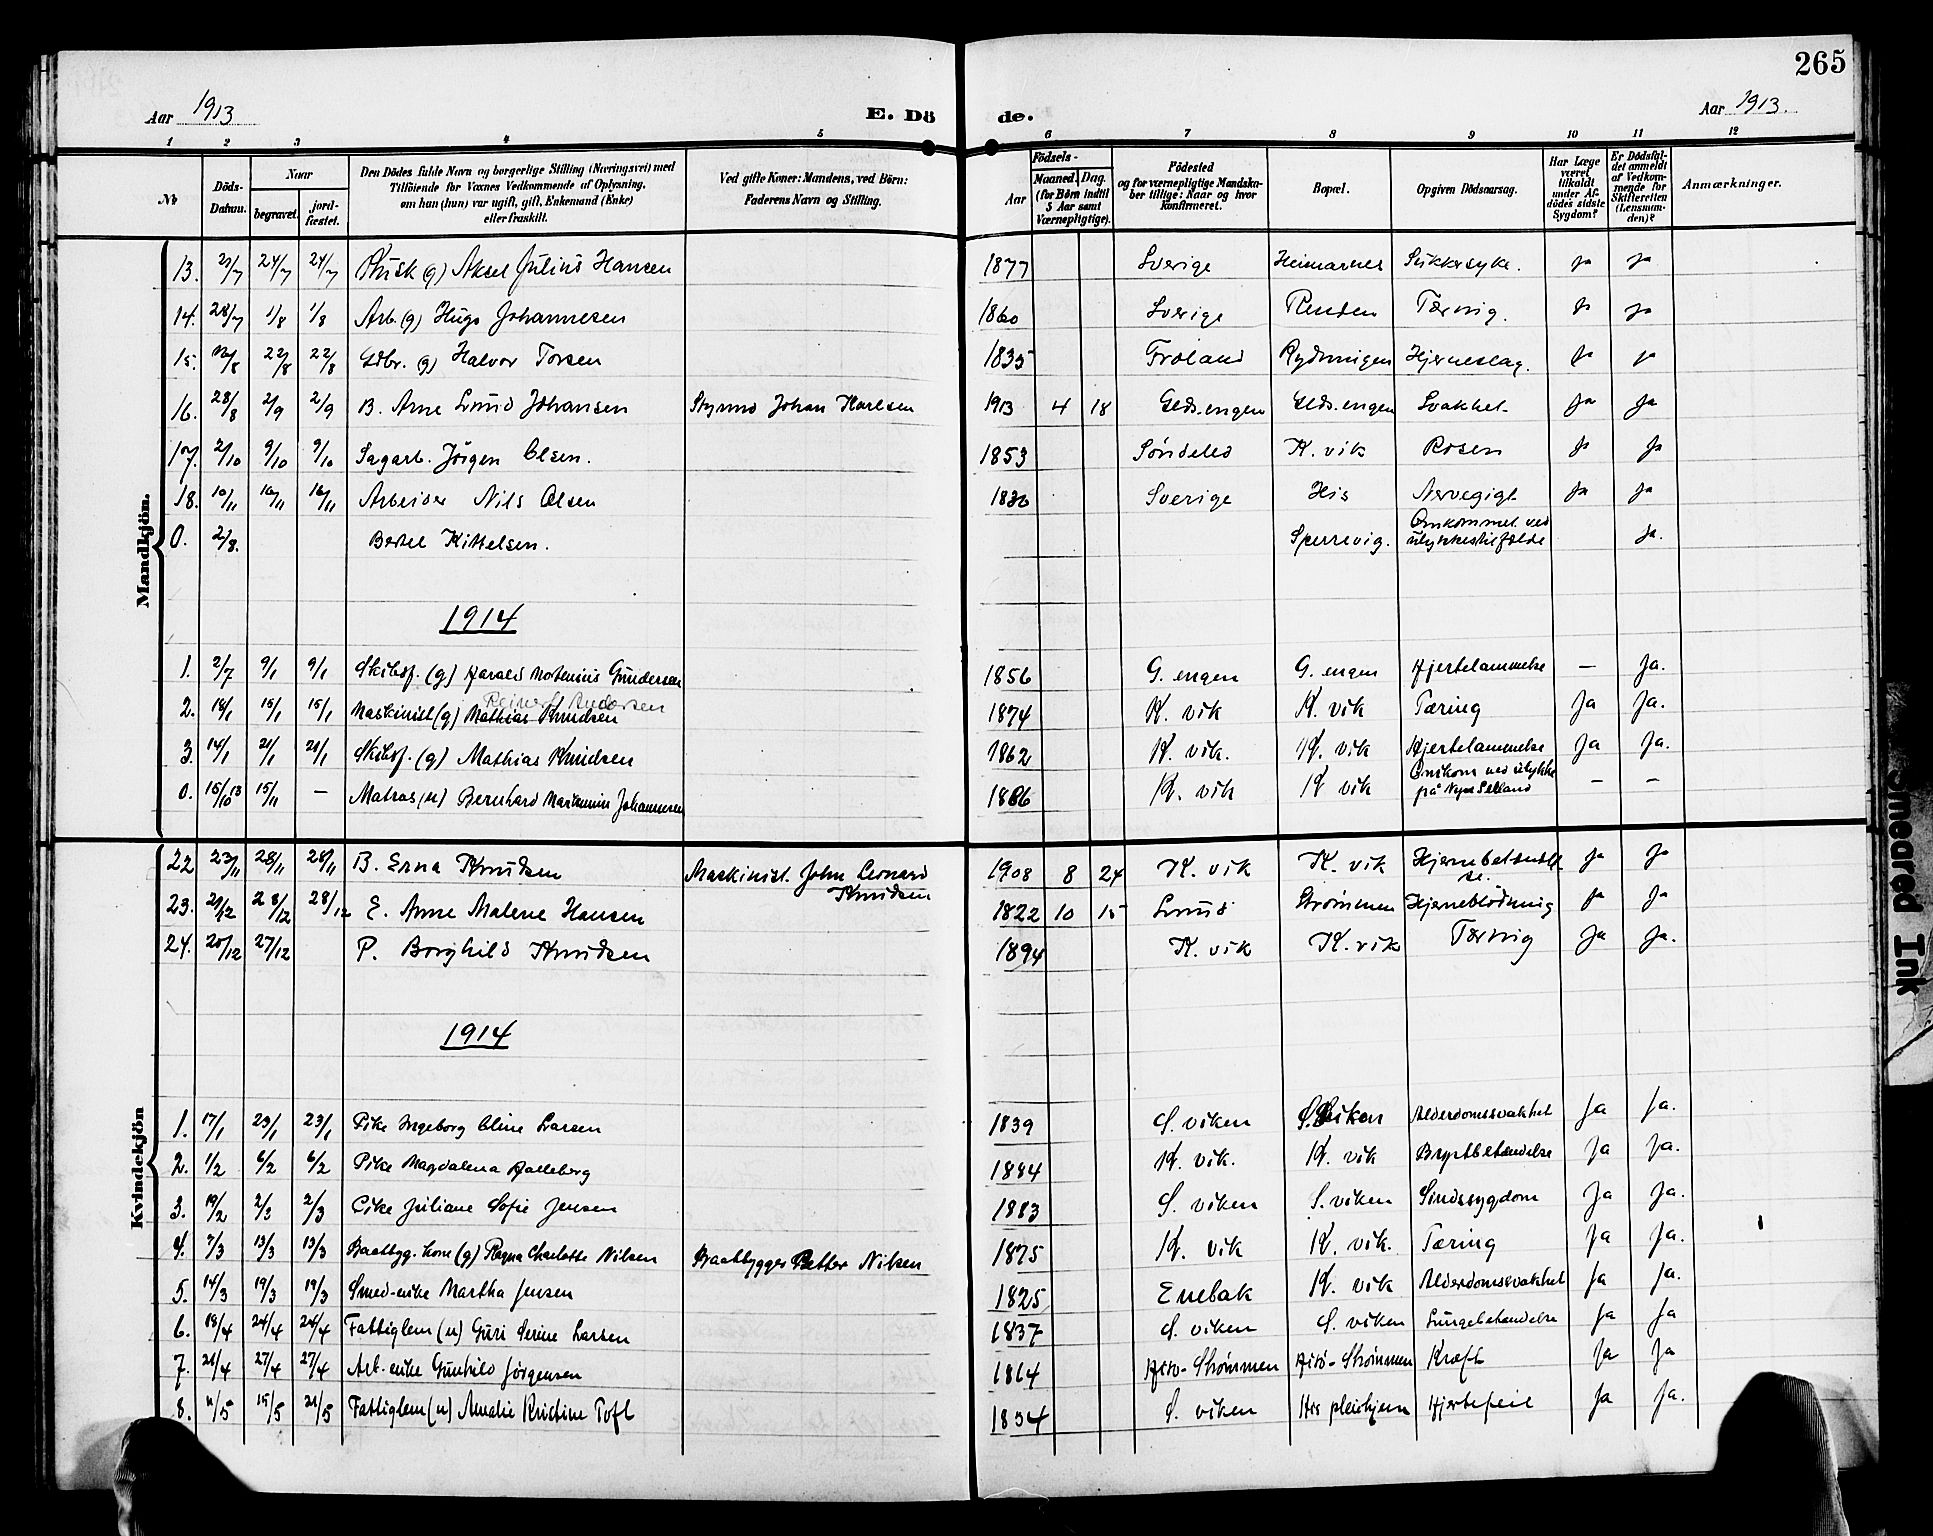 265
Aar 1913
E. Dö
de.
Aar 1913.
1 2 3 4 5 6 7 8 9 10 11 12
No
Döds-Datum.
Naar
begravet.
jordfæstet.
Den Dödes fulde Navn og borgerlige Stilling (Næringsvei) med
Tilföiende for Voxnes Vedkommende af Oplysning,
om han (hun) var ugift, gift, Enkemand (Enke)
eller fraskilt.
Ved gifte Koner: Mandens, ved Börn:
Faderens Navn og Stilling.
Födsels-
Aar
Maaned. Dag.
(for Børn indtil
5 Aar samt
Værnepligtige).
Födested
og for værnepligtige Mandskaber tillige: Naar og hvor
konfirmeret.
Bopæl.
Opgiven Dödsaarsag.
Har Læge
været
tilkaldt
under Afdödes sidste
Sygdom?
Er Dödsfaldet anmeldt
af Vedkommende for
Skifteretten
(Lensmanden)?
Anmærkninger.
Mandkjön.
13. 21/7 24/7 24/7 (g) Aksel Julius Hansen 1877 Sverige Sukkersyke. ja ja
14. 28/7 1/8 1/8 Arb. (g) Hugo Johannesen 1860 Sverige Renden Tæring. ja ja
15. 22/8 22/8 Gdbr. (g) Halvor Torsen 1835 Froland Rydningen Hjerneslag. ja ja
16. 28/8 2/9 2/9 B. Arne Lund Johansen Styrmd Johan Karlsen 1913 4 18 Glds.engen Glds.engen Svakhet ja ja
17. 2/10 9/10 9/10 Sagarb. Jörgen Olsen. 1853 Søndeled K. vik Rosen ja ja
18. 10/11 16/11 16/11 Arbeider Nils Olsen Sverige His Nervegigt ja ja
0. 2/8. Bertel Kittelsen. Sperrevig. Omkommet ved
ulykkestilfælde ja.
1914
1. 2/7 9/1 9/1 Skibsf. (g) Harald Motenius Gundersen 1856 G. engen G. engen Hjertelammelse — Ja.
Reinert Andersen
2. 15/1 15/1 Maskinist (g) Mathias Knudsen 1874 K. vik K. vik Tæring Ja Ja.
3. 14/1 21/1 21/1 Skibsf. (g) Mathias Knudsen 1862 K. vik. K. vik Hjertelammelse Ja Ja.
0. 15/10 13 15/11 — Matros (u) Bernhard Johannesen K. vik K vik Omkom ved ulykke
på — —
Kvindekjön
22 23/11 28/11 28/11 B. Erna Knudsen Maskinist. John Leonard
Knudsen 1908 8 24 K. vik K. vik ja ja
23. 21/12 28/12 28/12 E. Anne Malene Hansen 1822 10 15 Lund Strømmen Hjerneblödning ja ja
24. 20/12 27/12 P. Borghild Knudsen 1894 K. vik K. vik Tæring ja ja.
1914
1. 17/1 23/1 23/1 Pike Ingeborg Oline Larsen 1839 S. viken S. viken Alderdomssvakhet Ja Ja.
2. 1/2 6/2 6/2 Pike Magdalena 1884 K. vik. K. vik Brystbetændelse Ja Ja.
3. 19/2 2/3 2/3 Pike Juliane Sofie Jensen 1883 S. viken S. viken Sindssygdom Ja Ja.
4. 7/3 13/3 13/3 Baatbyg. kone (g) Ragna Charlotte Nilsen Baatbygger Petter Nilsen 1875 K. vik K. vik. Tæring Ja Ja.
5. 14/3 19/3 19/3 Smed-enke Martha Jensen 1825 Enebak K. vik Alderdomssvakhet Ja Ja.
6. 18/4 24/4 24/4 Fattiglem (u) Guri Serine Larsen 1837 S. viken S. viken Lungebetændelse Ja Ja
7. 21/4 27/4 27/4 Arb. enke Gunhild Jørgensen 1864 Strømmen Strømmen Kræft Ja Ja
8. 11/5 15/5 21/5 Fattiglem (u) Amelie Kristine Toft 1834 S. viken His pleiehjem Hjertefeil Ja Ja.
Smeared Ink